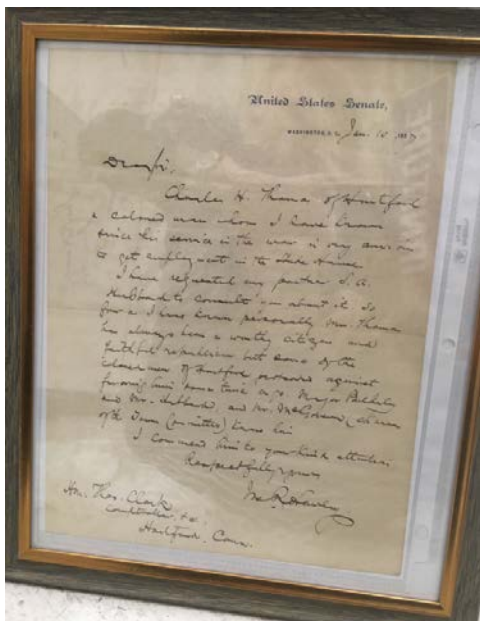 United States Senate,
WASHINGTON, D.C. Jan. 15
Dear Sir,
Charles H. Thomas of Hartford
a colored man whom I have known
since his service in the war is very anxious
to get employment in the State House
I have requested my partner S. A.
Hubbard to consult about it. So
far as I have known personally Mr. Thomas
has always been a worthy citizen and
faithful republican but some of the
colored men of Hartford against
favoring him some time ago. Major
and Mr. Hubbard, and Mr. McGovern,
of the Town Committee) him
I commend him to your kind attention
Respectfully yours
Hon. Thos. Clark
Comptroller, &c.
Hartford, Conn.